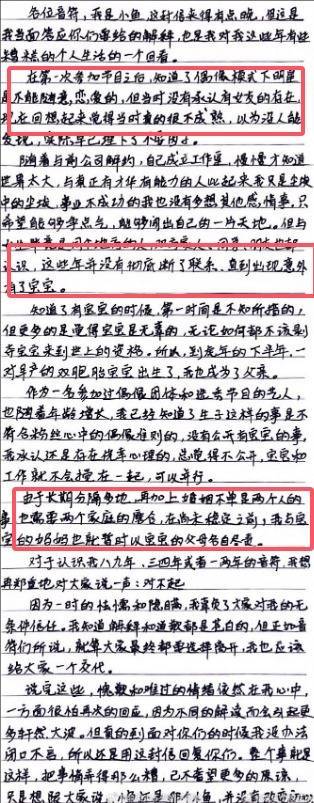 各位音符，我是小鱼，这封信来得有点晚，但这是
我当面答应你们要给的解释，也是我对我这些年有些
糟糕的个人生活的一个回看。
在第一次参加节目之后，知道了偶像模式下明星
是不能随意恋爱的，但当时没有承认有女友的存在，
现在回想起来觉得当时真的很不成熟，以为没人能
发现，实际早已埋下了
随着与前公司解约，自己成立工作室，慢慢才知道
世界太大，与真正有才华有能力的人比起来我只是尘埃
中的尘埃，事业不成功的我也没有多想其他感情事，只
希望能够争点气，能够闯出自己的一片天地。但与
这些年并没有彻底断了联系，直到出现意外
有了宝宝。
知道了有宝宝的时候，第一时间是不知所措的，
但更多的是觉得宝宝是无辜的，无论如何都不该剥
夺宝宝来到世上的资格。所以，到虎年的下半年，一
对早产的双胞胎宝宝出生了，我也成了父亲。
作为一名参加过偶像团体和选秀节目的艺人，
也随着年龄增长，我已经知道了生子这样的事是不
符合粉丝心中的偶像准则的，没有公开有宝宝的事，
我承认还是存在侥幸心理的，总觉得不公开，宝宝和
工作就不会撞在一起，可以并行。
由于长期分隔多地，再加上婚姻不单是两个人的
事也需要两个家庭的磨合，在尚未稳定之前，我与宝
宝的妈妈也就暂时以宝宝的父母各自尽责。
对于认识我八九年、三四年或者一两年的音符，我想
再郑重地对大家说一声：对不起
因为一时的怯懦和隐瞒，我辜负了大家对我的无
条件信任。我知道解释和道歉都是苍白的，但正如音
符们所说，就算大家最终都要选择离开，我也应该
给大家一个交代。
说完这些，惭愧和难过的情绪依然在我心中，
一方面很怕再次的回应，因为不同的解读而会引起更
多轩然大波。但真的到面对你们的时候我没办法
闭口不言，所以还是用这封信回复你们。整个事就是
这样，把事情弄得那么糟，已不奢望更多的原谅，
只是想跟大家说，小鱼还是那个小鱼，并没有改变初心